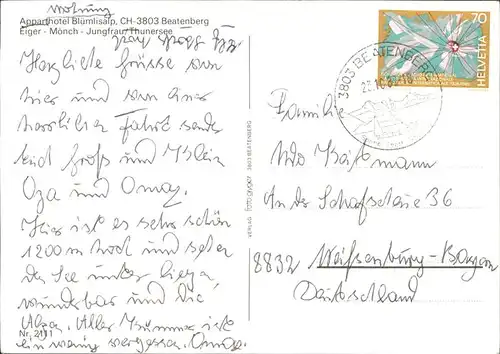 Apparthotel Blümlisalp, CH-3803 Beatenberg
Eiger - Mönch - Jungfrau/Thunersee
Herzliche Grüsse von
hier und von einer
herrlichen Fahrt sendet
Euch Groß und Klein
Oga und Omay.
Hier ist es sehr schön
1200 m hoch und sehen
den See unten liegen,
wunderbar und die
Alpen. Aller Kummer ist
ein wenig vergessen. Omay.
Nr. 2111
VERLAG FOTO GYGER 3803 BEATENBERG
HELVETIA 70
3803 BEATENBERG
Familie
Udo
An der Schafscheuer 36
8832 Weißenburg-Bayern
Deutschland